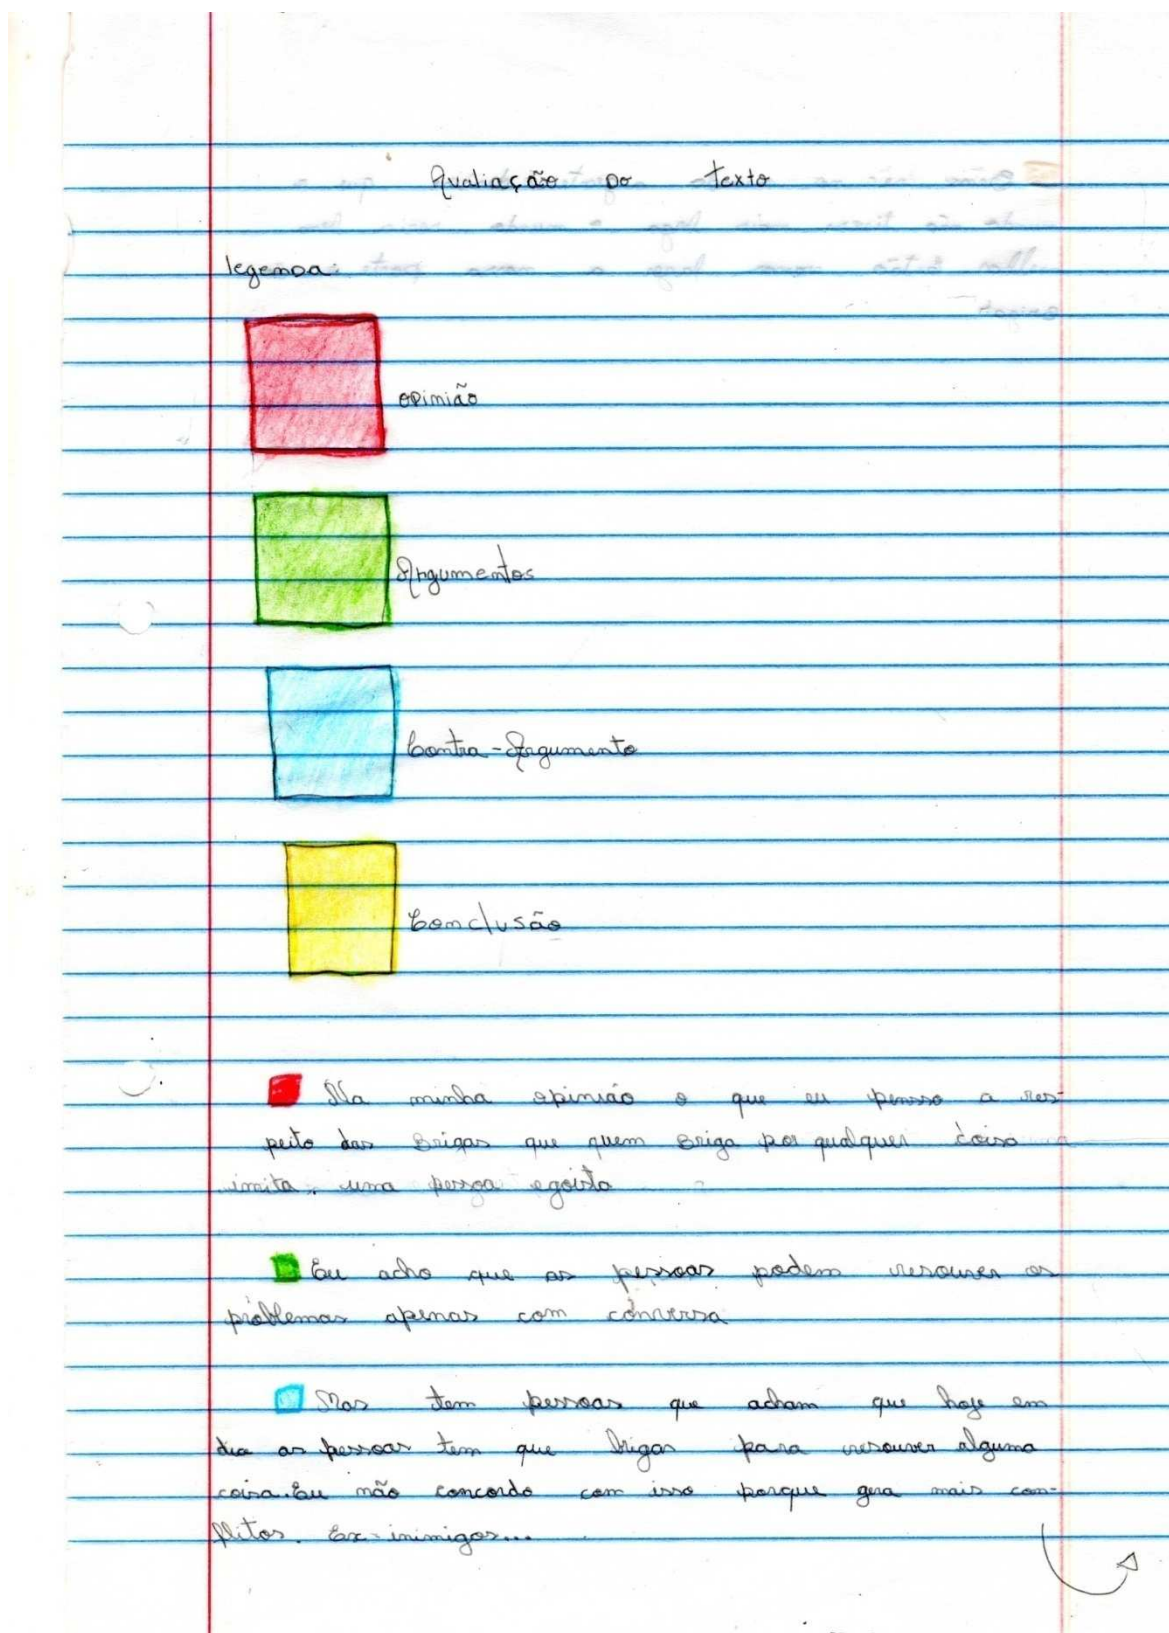 Avaliação do texto
legenda:
opinião
Argumentos
Contra-Argumento
Conclusão
Na minha opinião o que eu pensso a res-
peito das Brigas que quem Briga por qualquer coisa
imita uma pessoa egoista
Eu acho que as pessoas podem resouver os
problemas apenas com conversa
Mas tem pessoas que acham que hoje em
dia as pessoas tem que brigar para resouver alguma
coisa. Eu não concordo com isso porque gera mais con-
flitos. Ex-inimigos...